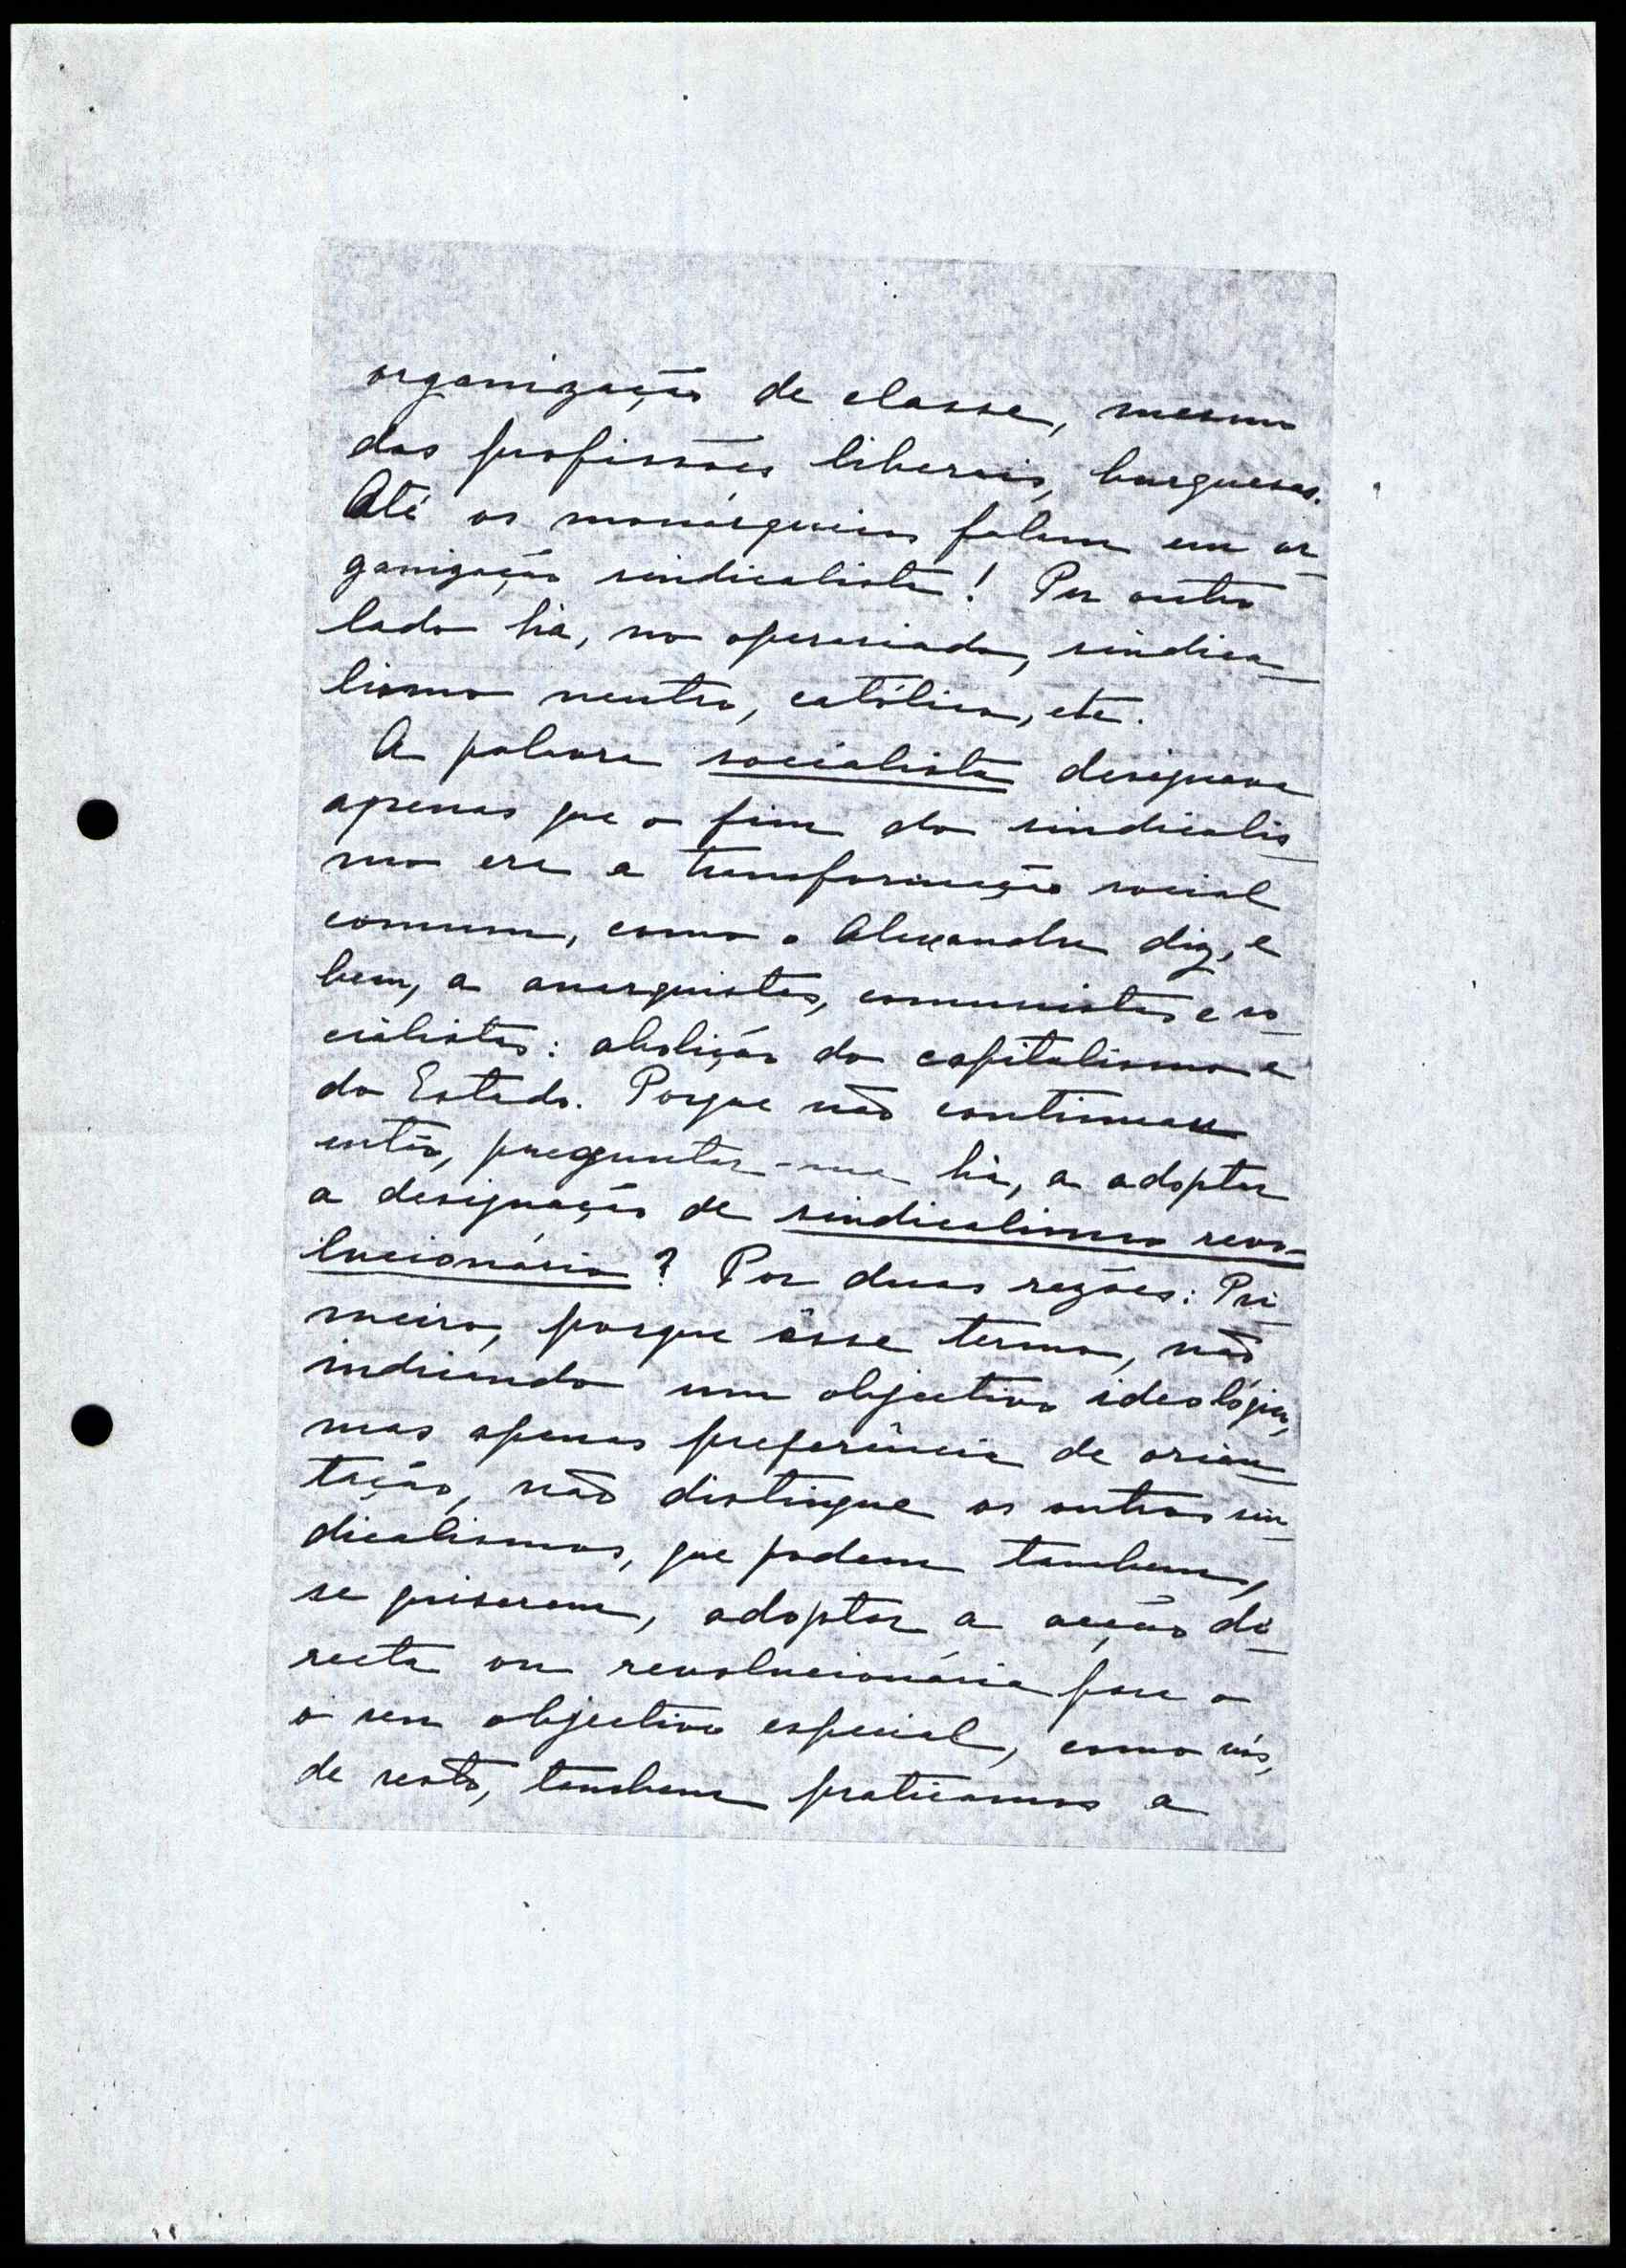 organização de classe, mesmo
das profissões liberais, burguesas.
Até os monárquicos falam em or
ganização sindicalista! Por outro
lado há, no operariado, sindica
lismo neutro, católico, etc.
A palavra socialista designava
apenas que o fim do sindicalis
mo era a transformação social
comum, como o Alexandre diz, e
bem, a anarquistas, comunistas e so
cialistas: abolição do capitalismo e
do Estado. Porque não continuar
então, preguntar-me há, a adoptar
a designação de sindicalismo revo-
lucionário? Por duas razões: Pri
meiro, porque êsse termo, não
indicando um objectivo ideológico,
mas apenas preferência de orien
tação, não distingue os outros sin
dicalismos, que podem tambem,
se quiserem, adoptar a acção di
recta ou revolucionária para o
o seu objectivo especial, como nós,
de resto, tambem praticamos a